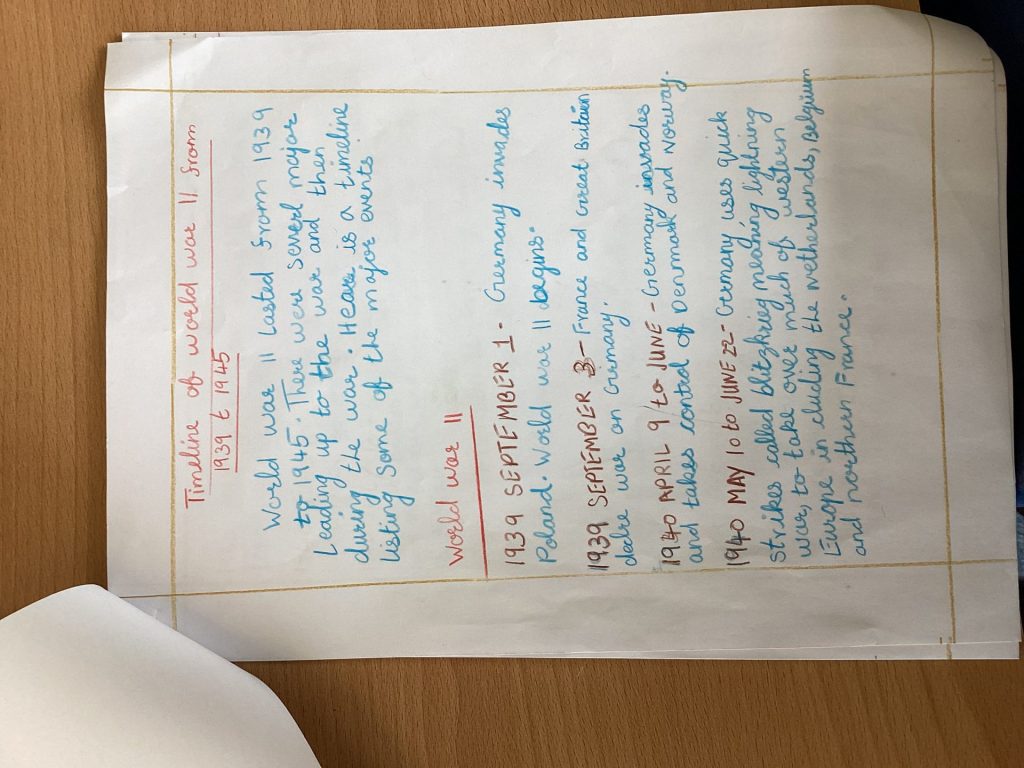 Timeline of world war II from
1939 t 1945
World war II lasted from 1939
to 1945. There were severl major
Leading up to the war and then
during the war. Heare is a timeline
listing some of the major events
World war II
1939 SEPTEMBER 1 - Germany invades
Poland. World war II begins.
1939 SEPTEMBER 3 - France and Great Britain
declre war on Germany.
1940 APRIL 9 to JUNE - Germany invades
and takes contol of Denmark and Norway.
1940 MAY 10 to JUNE 22 - Germany uses quick
strikes called blitzkrieg meaning lightning
war, to take over much of western
Europe in cluding the Netherlands, Belgium
and northern France.